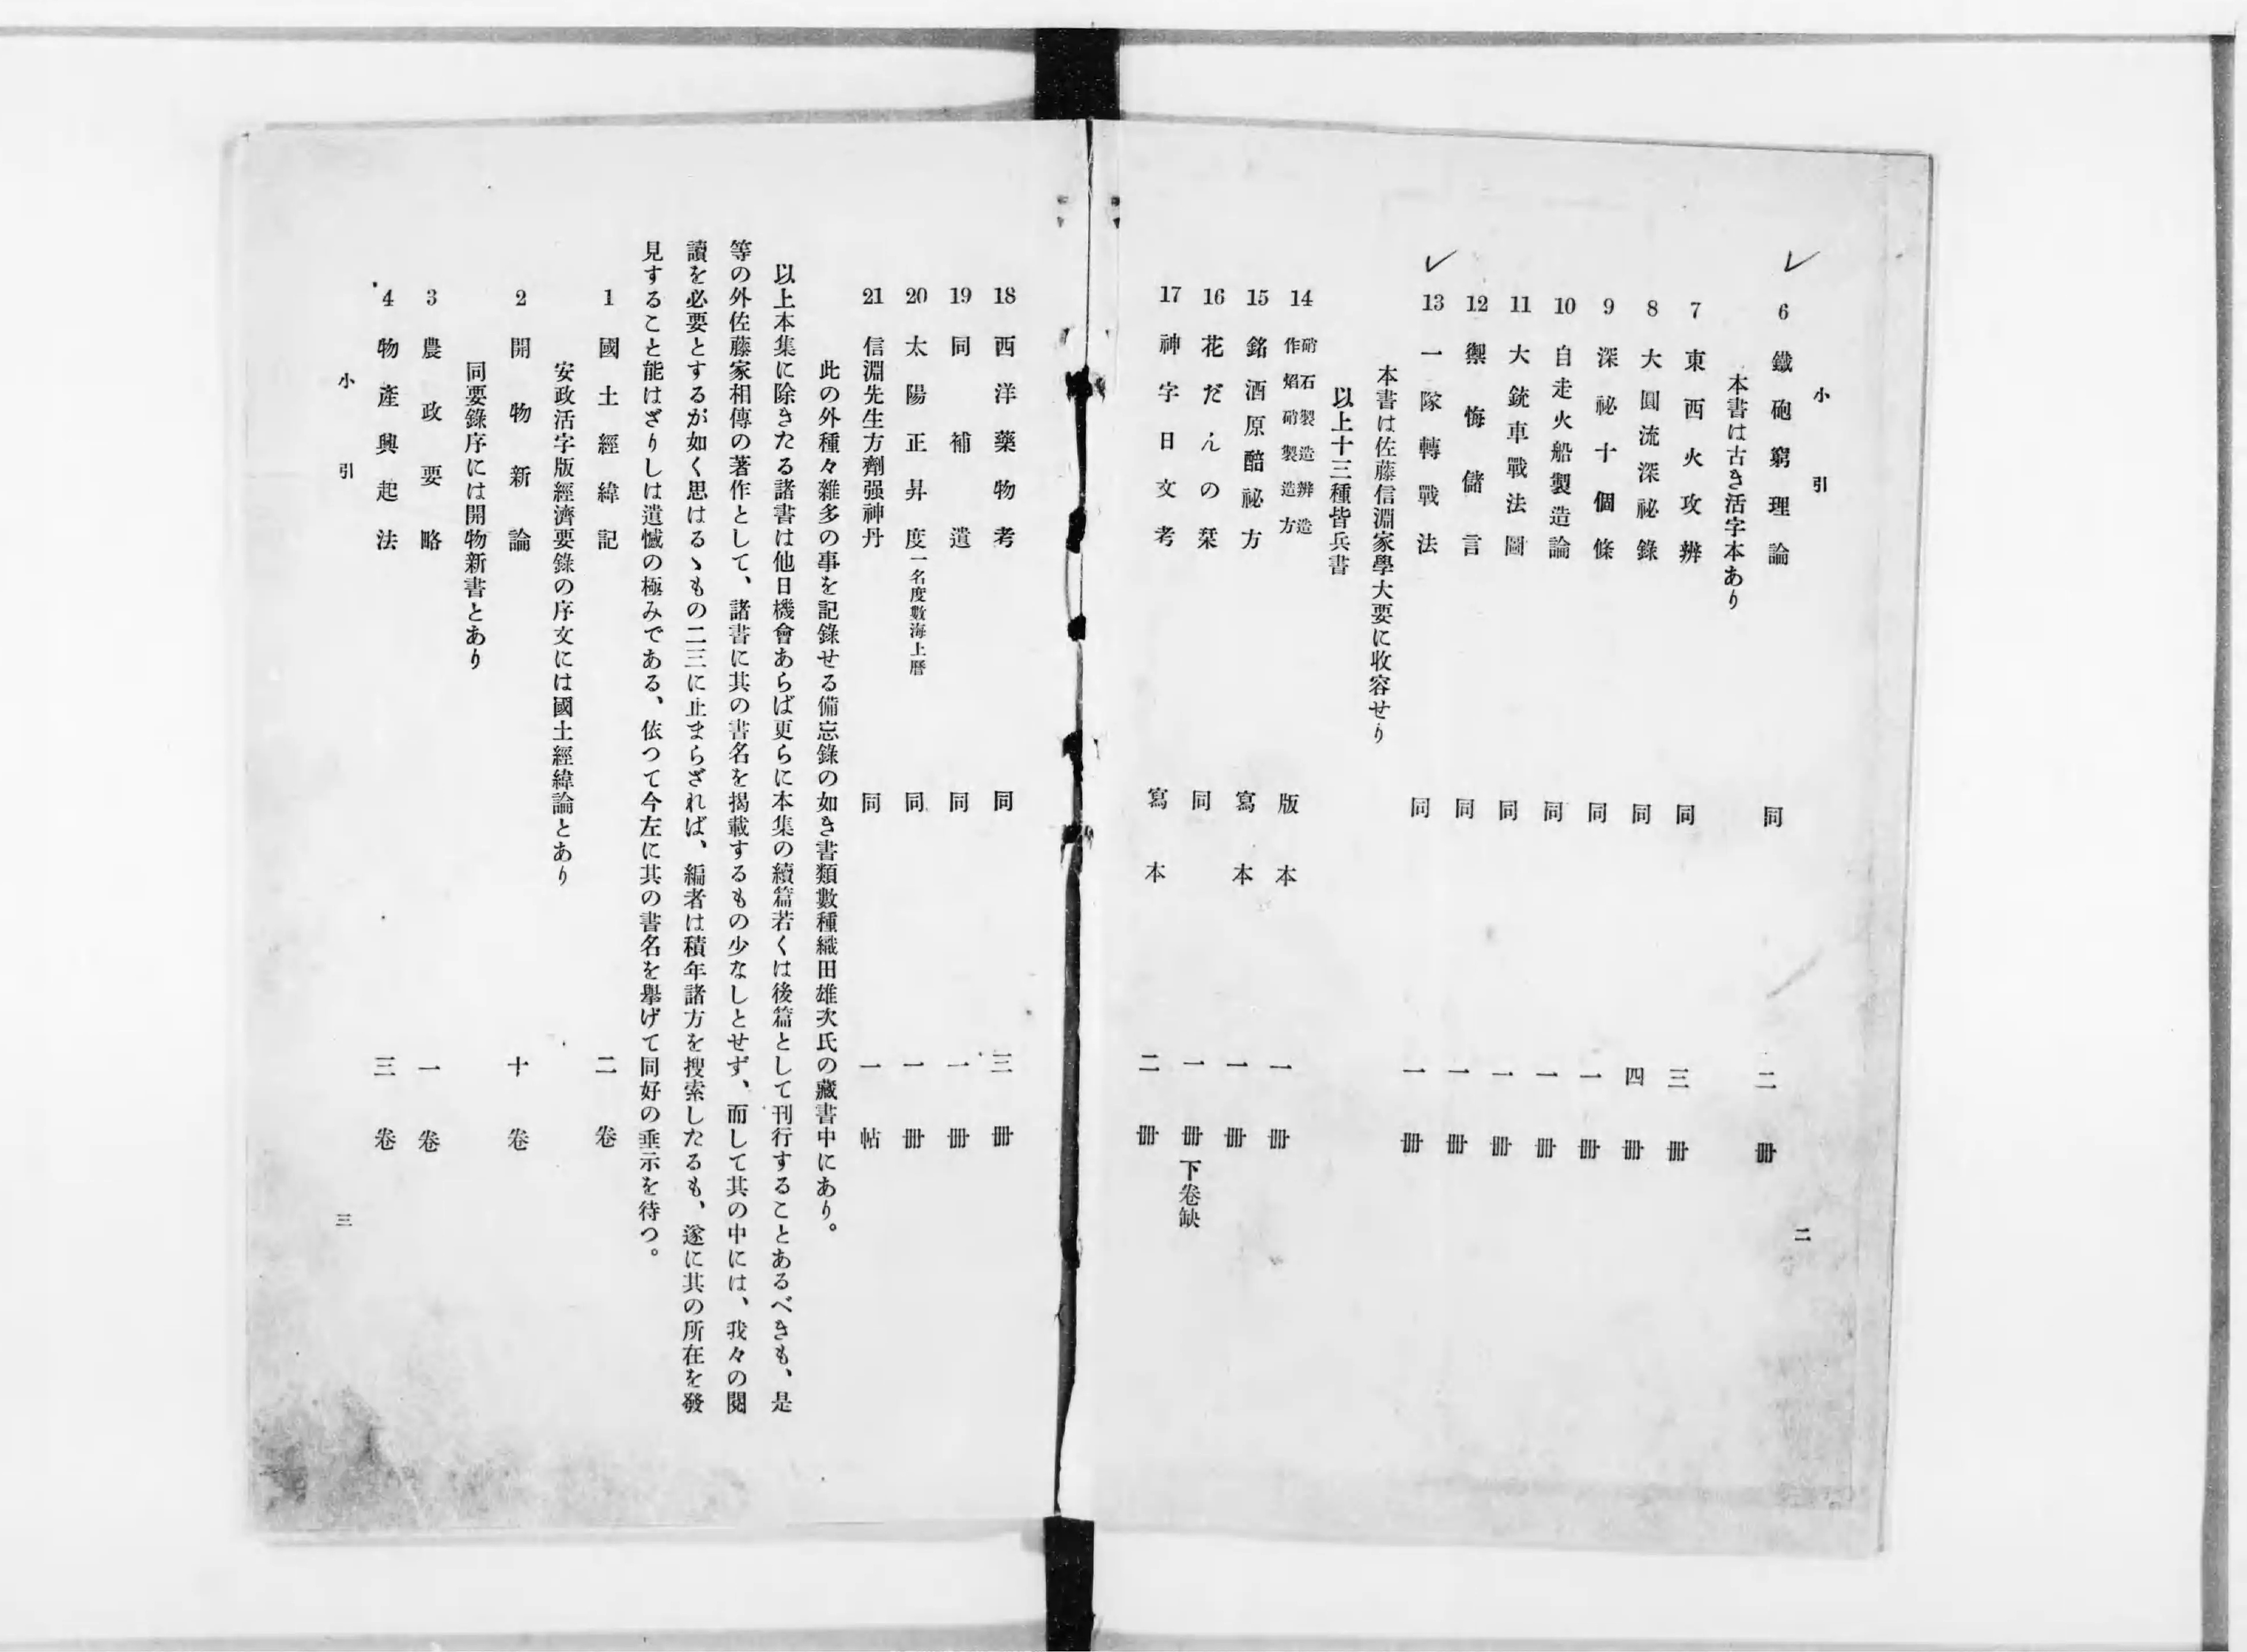 小引
6 鐵砲窮理論 同 二冊
本書は古き活字本あり
7 東西火攻辨 同 三冊
8 大圓流深祕錄 同 四冊
9 深祕十個條 同 一冊
10 自走火船製造論 同 一冊
11 大銃車戰法圖 同 一冊
12 禦侮儲言 同 一冊
13 一隊轉戰法 同 一冊
本書は佐藤信淵家學大要に收容せり
以上十三種皆兵書
14 硝石製造辨造
作焰硝製造方 版本 一冊
15 銘酒原醅祕方 寫本 一冊
16 花だんの栞 同 一冊 下卷缺
17 神字日文考 寫本 二冊
二
18 西洋藥物考 同 三冊
19 同補遺 同 一冊
20 太陽正昇度 一名度數海上曆 同 一冊
21 信淵先生方劑强神丹 同 一帖
此の外種々雜多の事を記錄せる備忘錄の如き書類數種織田雄次氏の藏書中にあり。
以上本集に除きたる諸書は他日機會あらば更らに本集の續篇若くは後篇として刊行することあるべきも、是
等の外佐藤家相傳の著作として、諸書に其の書名を揭載するもの少なしとせず、而して其の中には、我々の閱
讀を必要とするが如く思はるゝもの二三に止まらざれば、編者は積年諸方を搜索したるも、遂に其の所在を發
見すること能はざりしは遺憾の極みである、依つて今左に其の書名を擧げて同好の垂示を待つ。
1 國土經緯記 二卷
安政活字版經濟要錄の序文には國土經緯論とあり
2 開物新論 十卷
同要錄序には開物新書とあり
3 農政要略 一卷
4 物產興起法 三卷
小引
三